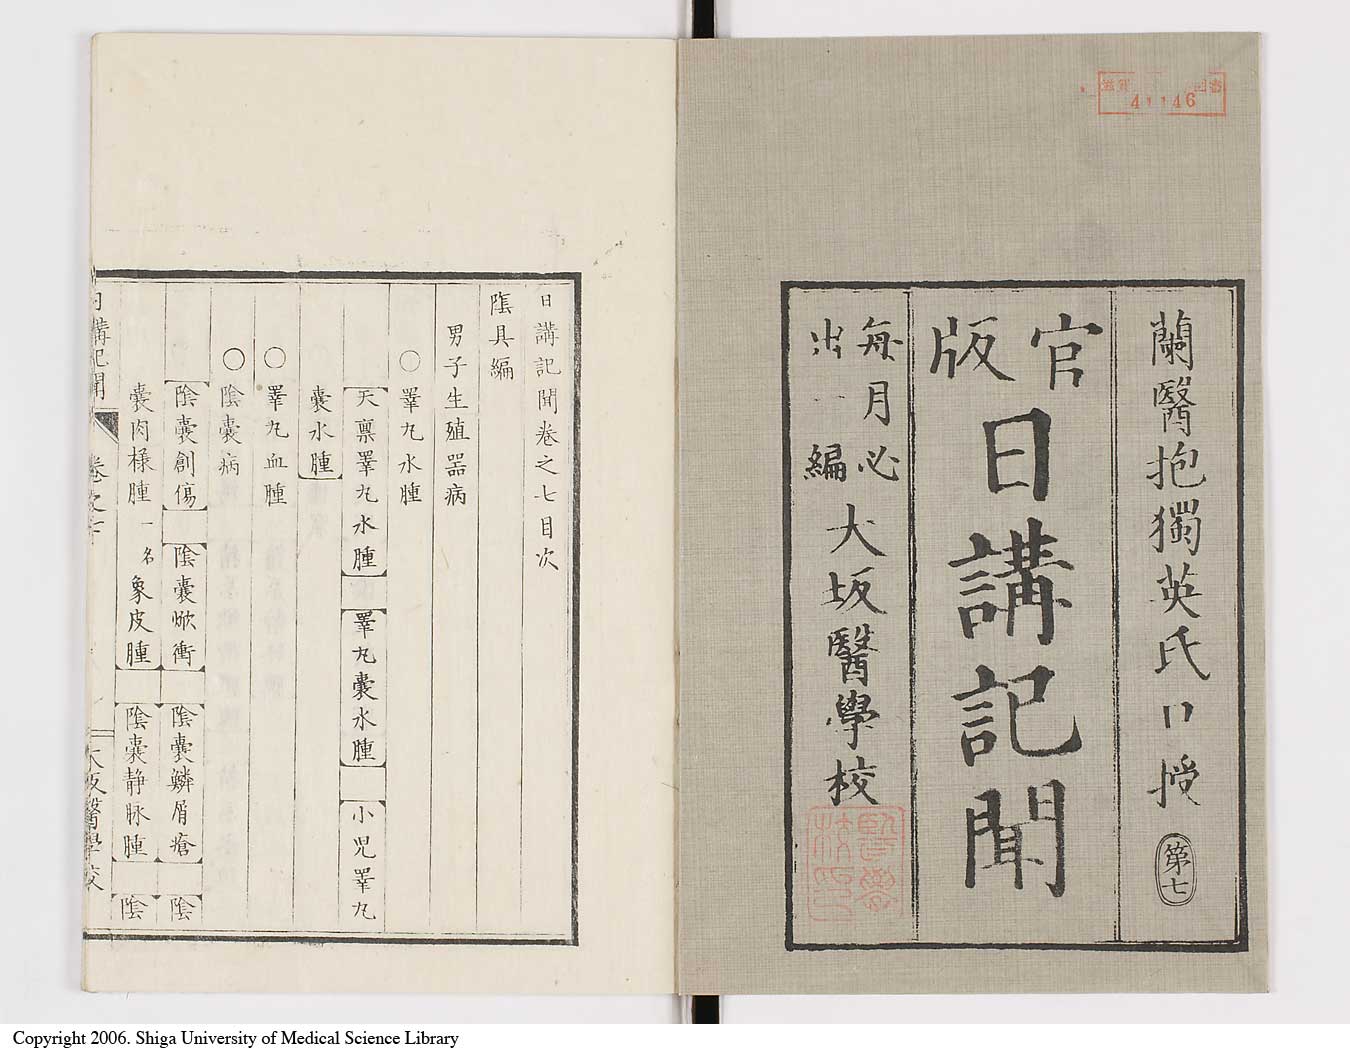 41146
蘭醫抱獨英氏口授
第七
官版
日講記聞
毎月必
出一編
大坂醫學校
日講記聞卷之七目次
陰具編
男子生殖器病
○睪丸水腫
天稟睪丸水腫 睪丸囊水腫 小児睪丸
囊水腫
○睪丸血腫
○陰囊病
陰囊創傷 陰囊焮衝 陰囊鱗屑瘡 陰
囊肉様腫 一名象皮腫 陰囊静脉腫 陰
日講記聞 卷之七 大坂醫學校
Copyright 2006. Shiga University of Medical Science Library